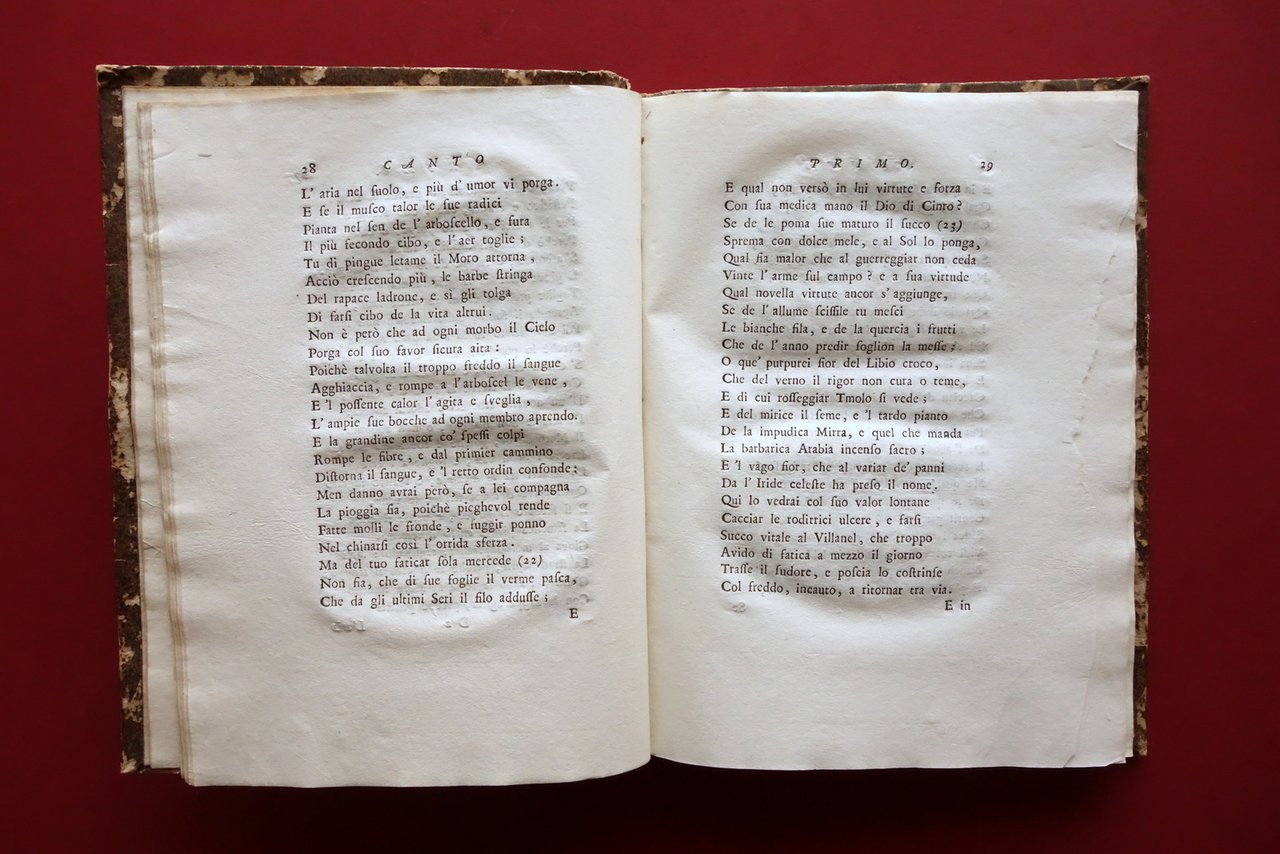 28 CANTO
L' aria nel ſuolo, e più d' umor vi porga.
E ſe il muſco talor le ſue radici
Pianta nel ſen de l' arboſcello, e fura
Il più fecondo cibo, e l' aer toglie;
Tu di pingue letame il Moro attorna,
Acciò creſcendo più, le barbe ſtringa
Del rapace ladrone, e sì gli tolga
Di farſi cibo de la vita altrui.
Non è però che ad ogni morbo il Cielo
Porga col ſuo favor ſicura aita:
Poichè talvolta il troppo freddo il ſangue
Agghiaccia, e rompe a l' arboſcel le vene,
E 'l poſſente calor l' agita e ſveglia,
L' ampie ſue bocche ad ogni membro aprendo.
E la grandine ancor co' ſpeſſi colpi
Rompe le fibre, e dal primier cammino
Diſtorna il ſangue, e 'l retto ordin confonde:
Men danno avrai però, ſe a lei compagna
La pioggia ſia, poichè pieghevol rende
Fatte molli le fronde, e fuggir ponno
Nel chinarſi così l' orrida sferza.
Ma del tuo faticar ſola mercede (22)
Non fia, che di ſue foglie il verme paſca,
Che da gli ultimi Seri il filo adduſſe;
E
PRIMO. 29
E qual non versò in lui virtute e forza
Con ſua medica mano il Dio di Cinto?
Se de le poma ſue maturo il ſucco (23)
Sprema con dolce mele, e al Sol lo ponga,
Qual fia malor che al guerreggiar non ceda
Vinte l' arme ſul campo? e a ſua virtude
Qual novella virtute ancor s' aggiunge,
Se de l' allume ſciſſile tu meſci
Le bianche fila, e de la quercia i frutti
Che de l' anno predir ſoglion la meſſe;
O que' purpurei fior del Libio croco,
Che del verno il rigor non cura o teme,
E di cui roſſeggiar Tmolo ſi vede;
E del mirice il ſeme, e 'l tardo pianto
De la impudica Mirra, e quel che manda
La barbarica Arabia incenſo ſacro;
E 'l vago fior, che al variar de' panni
Da l' Iride celeſte ha preſo il nome.
Qui lo vedrai col ſuo valor lontane
Cacciar le roditrici ulcere, e farſi
Succo vitale al Villanel, che troppo
Avido di fatica a mezzo il giorno
Traſſe il ſudore, e poſcia lo coſtrinſe
Col freddo, incauto, a ritornar tra via.
E in